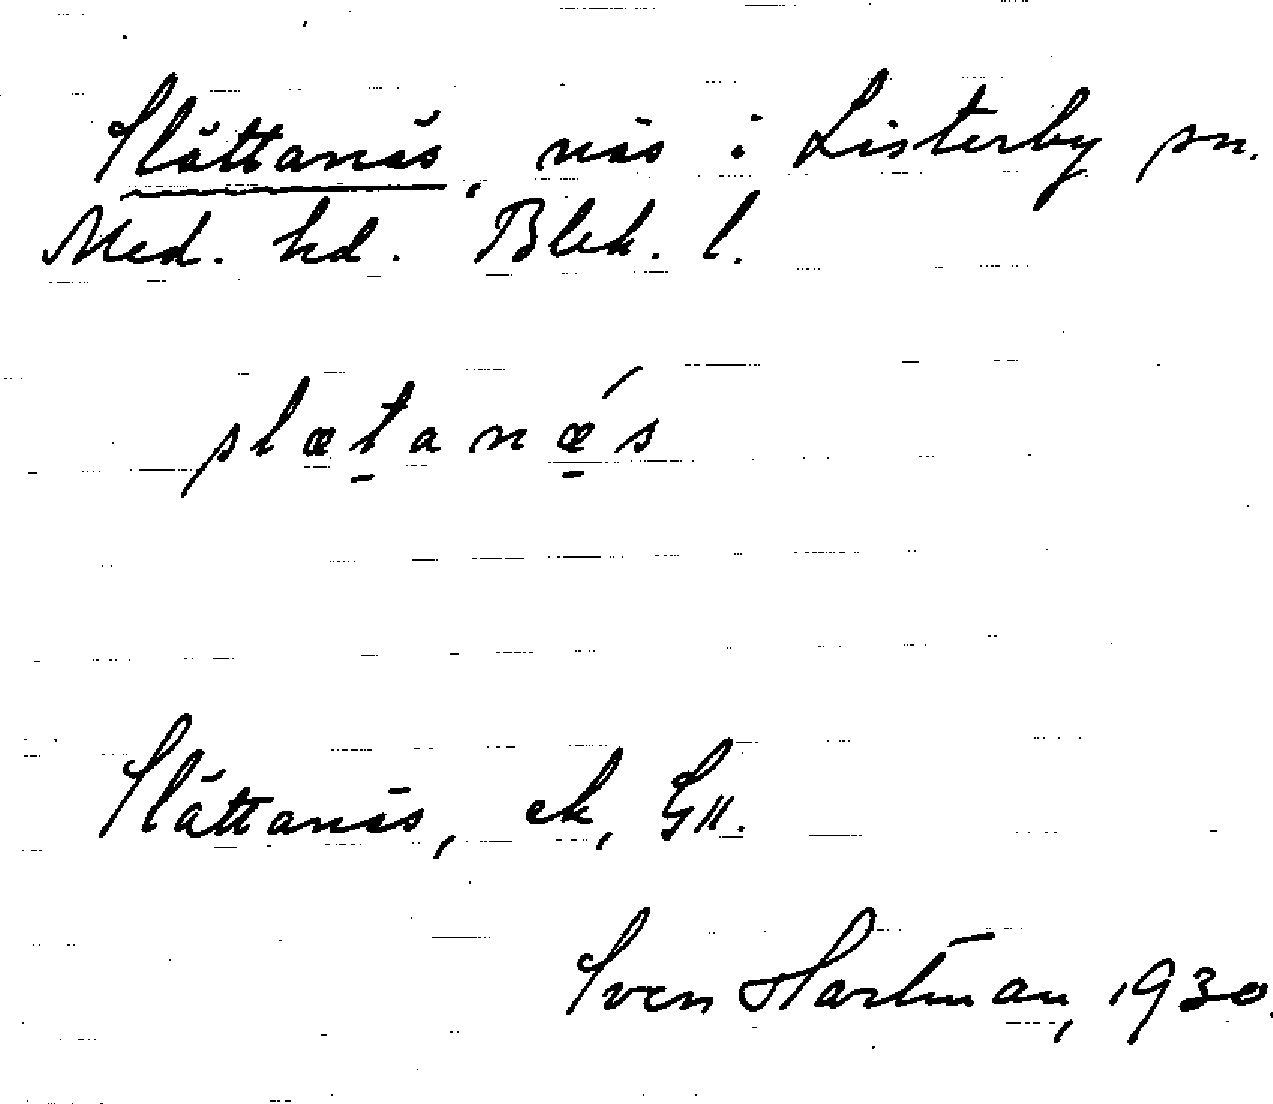 Slättanäs, näs i Listerby sn.
Med. hd. Blek. l.
slæt̠anǽ̠s
Slättanäs, ek, GK.
Sven Hartman, 1930.